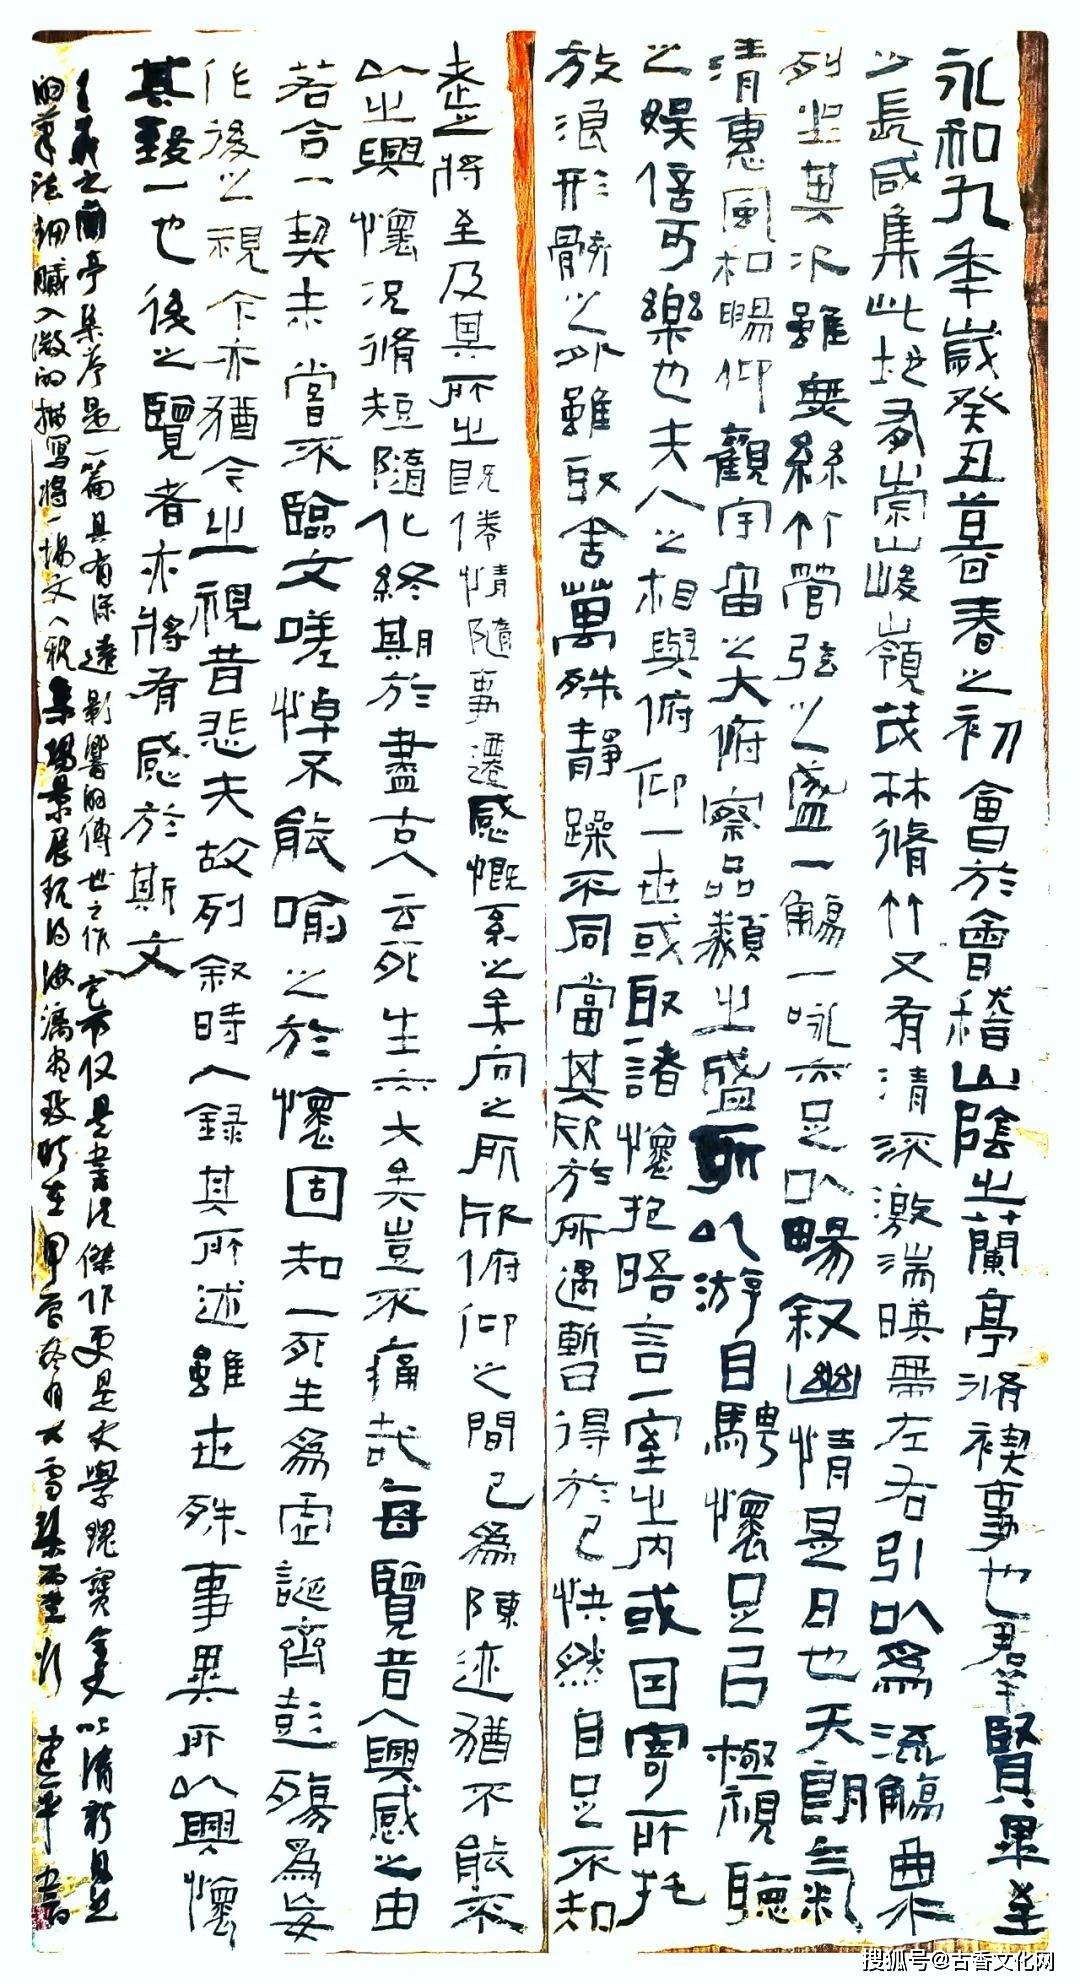 永和九年歲癸丑暮春之初會於會稽山陰之蘭亭脩禊事也羣賢畢至
少長咸集此地有崇山峻嶺茂林脩竹又有清流激湍暎帶左右引以為流觴曲水
列坐其次雖無絲竹管弦之盛一觴一詠亦足以暢叙幽情是日也天朗氣
清惠風和暢仰觀宇宙之大俯察品類之盛所以游目騁懷足以極視聽
之娛信可樂也夫人之相與俯仰一世或取諸懷抱晤言一室之內或因寄所托
放浪形骸之外雖取舍萬殊靜躁不同當其欣於所遇暫得於己快然自足不知
老之將至及其所之既倦情隨事遷感慨系之矣向之所欣俯仰之間已為陳迹猶不能不
以之興懷況脩短隨化終期於盡古人云死生亦大矣豈不痛哉每覽昔人興感之由
若合一契未嘗不臨文嗟悼不能喻之於懷固知一死生為虛誕齊彭殤為妄
作後之視今亦猶今之視昔悲夫故列叙時人錄其所述雖世殊事異所以興懷
其致一也後之覽者亦將有感於斯文
王羲之蘭亭集序是一篇具有深遠影響的傳世之作它不仅是書法傑作更是文學瑰寶全文以清新自然
的筆法細膩入微的描寫將一場文人雅集場景展現的淋漓盡致時在甲辰冬月大雪 建平書
搜狐号@古香文化网